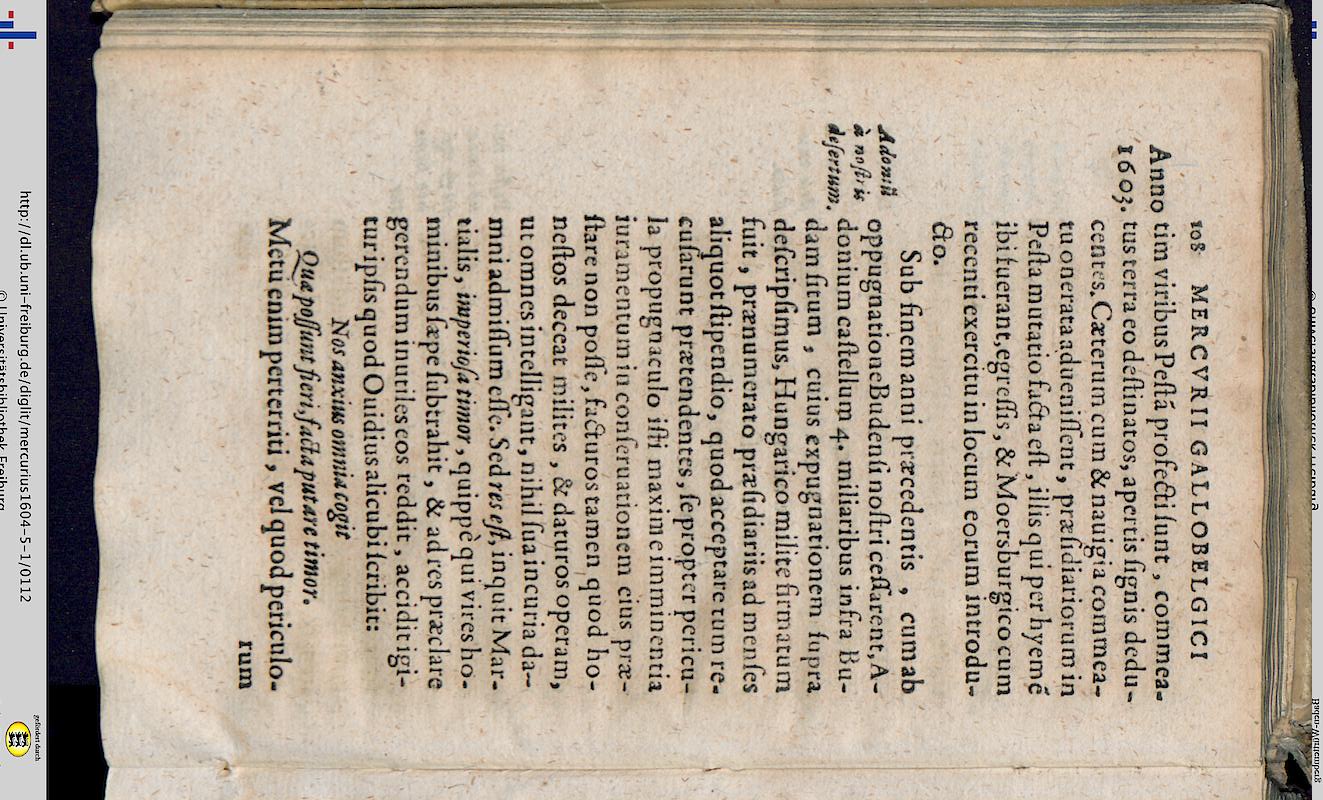 108 MERCVRII GALLOBELGICI
Anno
1603.
tim viribus Pestã profecti sunt, commea-
tus terra eo destinatos, apertis signis dedu-
centes. Cæterum cum & nauigia commea-
tu onerata aduenissent, præsidiariorum in
Pesta mutatio facta est, illis qui per hyemẽ
ibi fuerant, egressis, & Moersburgico cum
recenti exercitu in locum eorum introdu-
cto.
Sub finem anni præcedentis, cum ab
oppugnatione Budensi nostri cessarent, A-
donium castellum 4. miliaribus infra Bu-
dam situm, cuius expugnationem supra
descripsimus, Hungarico milite firmatum
fuit, prænumerato præsidiariis ad menses
aliquot stipendio, quod acceptare tum re-
cusarunt prætendentes, se propter pericu-
la propugnaculo isti maxime imminentia
iuramentum in conseruationem eius præ-
stare non posse, facturos tamen quod ho-
nestos deceat milites, & daturos operam,
ut omnes intelligant, nihil sua incuria da-
mni admissum esse. Sed res est, inquit Mar-
tialis, imperiosa timor, quippè qui vires ho-
minibus sæpe subtrahit, & ad res præclare
gerendum inutiles eos reddit, accidit igi-
tur ipsis quod Ouidius alicubi scribit:
Nos anxius omnia cogit
Quæ possunt fieri, facta putare timor.
Metu enim perterriti, vel quod periculo-
rum
Adoniũ
à nostris
desertum.
http://dl.ub.uni-freiburg.de/diglit/mercurius1604-5-1/0112
© Universitätsbibliothek Freiburg
gefördert durch